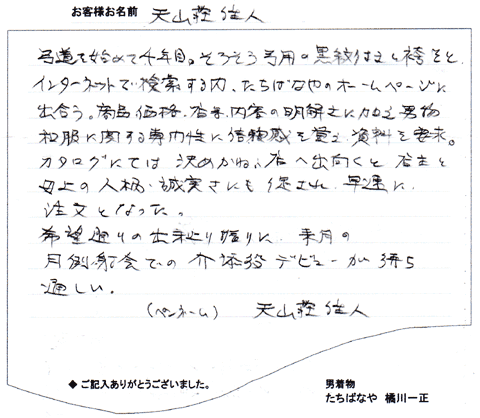 お客様お名前 天山荘住人
弓道を始めて十年目。そろそろ弓用の黒紋付きと袴をと
インターネットで検索する内、たちばなやのホームページに
出合う。商品、価格、内容の明解さに加え男物
和服に関する専門性に信頼感を覚え、資料を要求。
カタログにては決めかね、店へ出向くと店主と
母上の人柄・誠実さにも促され、早速に
注文となった。
希望通りの出来上り振りに、来月の
月例射会での介添役デビューが待ち
遠しい。
(ペンネーム) 天山荘住人
◆ ご記入ありがとうございました。
男着物
たちばなや 橘川一正